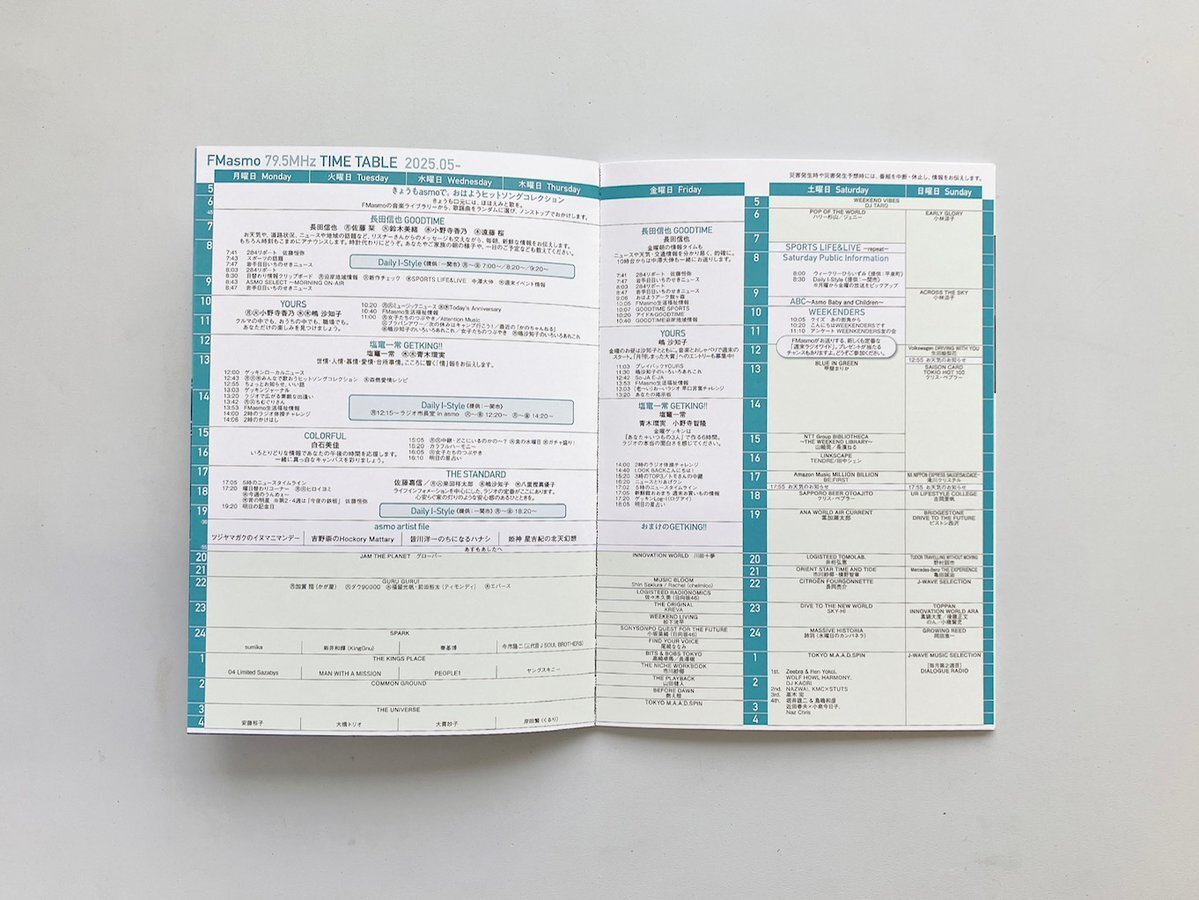 FMasmo 79.5MHz TIME TABLE 2025.05-
月曜日 Monday
火曜日 Tuesday
水曜日 Wednesday
木曜日 Thursday
5
きょうもasmoで。おはようヒットソングコレクション
6
きょうも口元には、ほほえみと歌を。
FMasmoの音楽ライブラリーから、歌謡曲をランダムに選び、ノンストップでおかけします。
7
長田信也 GOODTIME
長田信也 ㊊佐藤 栞 ㊋鈴木美緒 ㊌小野寺香乃 ㊍遠藤 桜
お天気や、道路状況、ニュースや地域の話題など、リスナーさんからのメッセージも交えながら、毎朝、新鮮な情報をお伝えします。
もちろん時刻もこまめにアナウンスします。時計代わりにどうぞ。あなたやご家族の朝の様子や、一日のご予定なども教えてください。
8
7:41 284リポート 佐藤恒弥
7:43 スポーツの話題
7:47 岩手日日いちのせきニュース
8:03 284リポート
8:30 日替わり情報クリップボード
8:43 ASMO SELECT ～MORNING ON-AIR
8:47 岩手日日いちのせきニュース
Daily I-Style (提供:一関市) ㊊～㊎ 7:00～/8:20～/9:20～
9
㊋新作チェック ㊌SPORTS LIFE&LIVE 中澤大伸 ㊍週末イベント情報
10
YOURS
11
㊊㊋小野寺香乃 ㊌㊍嶋 沙知子
クルマの中でも、おうちの中でも、職場でも。
あなただけの楽しみを見つけましょう。
10:20
10:40 FMasmo生活福祉情報
11:00
12
塩竈一常 GETKING!!
13
塩竈一常 ㊌㊍青木瑠実
世情・人情・慕情・愛情・台所事情。こころに響く「情」報をお伝えします。
12:00 ゲッキンローカルニュース
12:55 ちょっとお知らせ、いい話
13:03 ゲッキンジャーナル
13:20 ラジオで広がる素敵な出逢い
13:53 FMasmo生活福祉情報
14:00 2時のラジオ体操チャレンジ
14:06 2時のかけはし
14
Daily I-Style (提供:一関市)
㊊12:15～ラジオ市長室 in asmo ㊋～㊍ 12:20～ ㊊～㊎ 14:20～
15
COLORFUL
白石美佳
いろとりどりな情報であなたの午後の時間を応援します。
一緒に真っ白なキャンバスを彩りましょう。
16
15:20 カラフルハーモニー
16:10 明日の星占い
17
THE STANDARD
ライフインフォメーションを中心にした、ラジオの定番がここにあります。
心安らぐ家の灯りのような安心感のあるひとときを。
17:05 5時のニュースタイムライン
17:20 曜日替わりコーナー
18
19:20 明日の記念日
Daily I-Style (提供:一関市) ㊊～㊎ 18:20～
19
asmo artist file
ツジヤマガクのイヌマニマンデー
吉野崇のHockory Mattary
皆川洋一のちになるハナシ
姫神 星吉紀の北天幻想
あすもあしたへ
20
JAM THE PLANET グローバー
21
22
GURU GURU!
㊊加賀 翔 (かが屋) ㊋ダウ90000 ㊌福留光帆・前田裕太 (ティモンディ) ㊍エバース
23
24
SPARK
sumika
新井和輝 (KingGnu)
秦基博
今市隆二 (三代目 J SOUL BROTHERS)
1
THE KINGS PLACE
04 Limited Sazabys
MAN WITH A MISSION
PEOPLE1
ヤングスキニー
2
COMMON GROUND
3
THE UNIVERSE
4
安藤裕子
大橋トリオ
大貫妙子
岸田繁 (くるり)
金曜日 Friday
長田信也 GOODTIME
長田信也
金曜朝の情報タイムも
ニュースや天気・交通情報を分かり易く、的確に。
10時台からは中澤大伸も一緒にお送りします。
7:41 284リポート 佐藤恒弥
7:47 岩手日日いちのせきニュース
8:03 284リポート
8:47 岩手日日いちのせきニュース
10:05 FMasmo生活福祉情報
10:07 GOODTIME SPORTS
10:20 アイドルGOODTIME
10:40 GOODTIME沿岸地域情報
YOURS
嶋 沙知子
金曜のお昼は沙知子とともに。音楽とおしゃべりで週末の
スタート。「月1押しまった大賞」へのエントリーも募集中!
11:03 プレイバックYOURS
11:30 嶋沙知子のいろいろあれこれ
12:42 So-JA E-JA
13:53 FMasmo生活福祉情報
13:20 あなたの掲示板
塩竈一常 GETKING!!
塩竈一常
青木瑠実 小野寺智隆
金曜ゲッキンは
「あなた+いつもの3人」で作る6時間。
ラジオの本当の面白さを感じてください。
14:00 2時のラジオ体操チャレンジ
14:40 LOOK BACKこんにちは!
15:20 3時のTOP3/トモさんの中継
16:20 ニュースとりあげラン
17:02 5時のニュースタイムライン
17:05 新鮮朝おおまち 週末お買いもの情報
18:05 明日の星占い
おまけのGETKING!!
INNOVATION WORLD 川田十夢
MUSIC BLOOM
Shin Sakiura / Rachel (chelmico)
LOGISTEED RADIONOMICS
佐々木久美 (日向坂46)
THE ORIGINAL
KREVA
WEEKEND LIVING
松下洸平
SONYSONPO QUEST FOR THE FUTURE
小坂菜緒 (日向坂46)
FIND YOUR VOICE
尾崎ななみ
BITS & BOBS TOKYO
高崎卓馬/長澤樹
THE NICHE WORKBOOK
市川紗椰
THE PLAYBACK
山田健人
BEFORE DAWN
燃え殻
TOKYO M.A.A.D.SPIN
災害発生時や災害発生予想時には、番組を中断・休止し、情報をお伝えします。
土曜日 Saturday
日曜日 Sunday
5
WEEKEND VIBES
DJ TARO
6
POP OF THE WORLD
ハリー杉山/ジェニー
EARLY GLORY
小林涼子
7
SPORTS LIFE&LIVE ～repeat～
8
Saturday Public Information
8:00 ウィークリーひらいずみ (提供:平泉町)
8:30 Daily I-Style (提供:一関市)
※月曜から金曜の放送をピックアップ
9
ABC～Asmo Baby and Children～
ACROSS THE SKY
小林涼子
10
WEEKENDERS
10:05 クイズ あの街角から
10:20 こんにちはWEEKENDERSです
11:10 アンケート WEEKENDERS世の会
11
FMasmoがお送りする、新しくも定番な
「週末ラジオワイド」。プレゼントが当たる
チャンスもありますよ。どうぞご参加ください。
12
Volkswagen DRIVING WITH YOU
生田絵梨花
12:55 お天気のお知らせ
13
BLUE IN GREEN
甲斐まりか
SAISON CARD
TOKIO HOT 100
クリス・ペプラー
14
15
NTT Group BIBLIOTHECA
～THE WEEKEND LIBRARY～
山崎怜/長濱ねる
16
LINKSCAPE
TENDRE/田中シェン
17
Amazon Music MILLION BILLION
BE:FIRST
NX NIPPON EXPRESS SAUDE SAUDADE
滝川クリステル
17:55 お天気のお知らせ
17:55 お天気のお知らせ
18
SAPPORO BEER OTOAJITO
クリス・ペプラー
UR LIFESTYLE COLLEGE
吉岡里帆
19
ANA WORLD AIR CURRENT
葉加瀬太郎
BRIDGESTONE
DRIVE TO THE FUTURE
ピストン西沢
20
LOGISTEED TOMOLAB.
井桁弘恵
TUDOR TRAVELLING WITHOUT MOVING
野村訓市
21
ORIENT STAR TIME AND TIDE
市川紗椰・榎野智章
Mercedes-Benz THE EXPERIENCE
亀田誠治
22
CITROËN FOURGONNETTE
長岡亮介
J-WAVE SELECTION
23
DIVE TO THE NEW WORLD
SKY-HI
TOPPAN
INNOVATION WORLD ERA
真鍋大度/後藤正文
のん/小橋賢児
24
MASSIVE HISTORIA
詩羽 (水曜日のカンパネラ)
GROWING REED
岡田准一
1
TOKYO M.A.A.D.SPIN
1st. Zeebra & Ren Yokoi,
WOLF HOWL HARMONY,
DJ KAORI
2nd. NAZWA!, KMC×STUTS
3rd. 高木 完
Naz Chris
J-WAVE MUSIC SELECTION
[毎月第2週目]
DIALOGUE RADIO
2
3
4